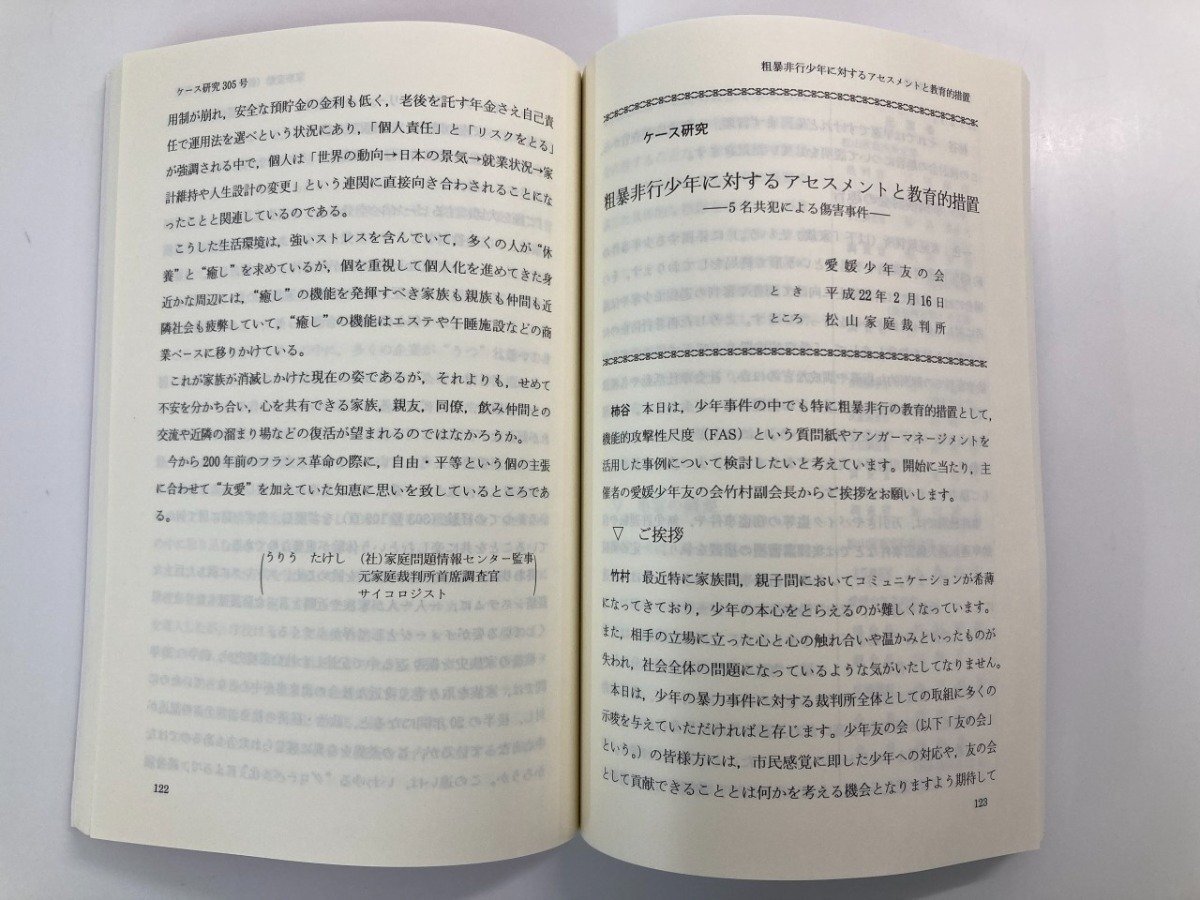 ケース研究 305 号
用制が崩れ，安全な預貯金の金利も低く，老後を託す年金さえ自己責
任で運用法を選べという状況にあり，「個人責任」と「リスクをとる」
が強調される中で，個人は「世界の動向→日本の景気→就業状況→家
計維持や人生設計の変更」という連関に直接向き合わされることにな
ったことと関連しているのである。
こうした生活環境は，強いストレスを含んでいて，多くの人が“休
養”と“癒し”を求めているが，個を重視して個人化を進めてきた身
近かな周辺には，“癒し”の機能を発揮すべき家族も親族も仲間も近
隣社会も疲弊していて，“癒し”の機能はエステや午睡施設などの商
業ベースに移りかけている。
これが家族が消滅しかけた現在の姿であるが，それよりも，せめて
不安を分かち合い，心を共有できる家族，親友，同僚，飲み仲間との
交流や近隣の溜まり場などの復活が望まれるのではなかろうか。
今から200年前のフランス革命の際に，自由・平等という個の主張
に合わせて“友愛”を加えていた知恵に思いを致しているところであ
る。
（うりう たけし （社）家庭問題情報センター監事
元家庭裁判所首席調査官
サイコロジスト）
122
粗暴非行少年に対するアセスメントと教育的措置
ケース研究
粗暴非行少年に対するアセスメントと教育的措置
――5 名共犯による傷害事件――
愛媛少年友の会
とき 平成22年2月16日
ところ 松山家庭裁判所
柿谷 本日は，少年事件の中でも特に粗暴非行の教育的措置として，
機能的攻撃性尺度（FAS）という質問紙やアンガーマネージメントを
活用した事例について検討したいと考えています。開始に当たり，主
催者の愛媛少年友の会竹村副会長からご挨拶をお願いします。
▽ ご挨拶
竹村 最近特に家族間，親子間においてコミュニケーションが希薄
になってきており，少年の本心をとらえるのが難しくなっています。
また，相手の立場に立った心と心の触れ合いや温かみといったものが
失われ，社会全体の問題になっているような気がいたしてなりません。
本日は，少年の暴力事件に対する裁判所全体としての取組に多くの
示唆を与えていただければと存じます。少年友の会（以下「友の会」
という。）の皆様方には，市民感覚に即した少年への対応や，友の会
として貢献できることとは何かを考える機会となりますよう期待して
123